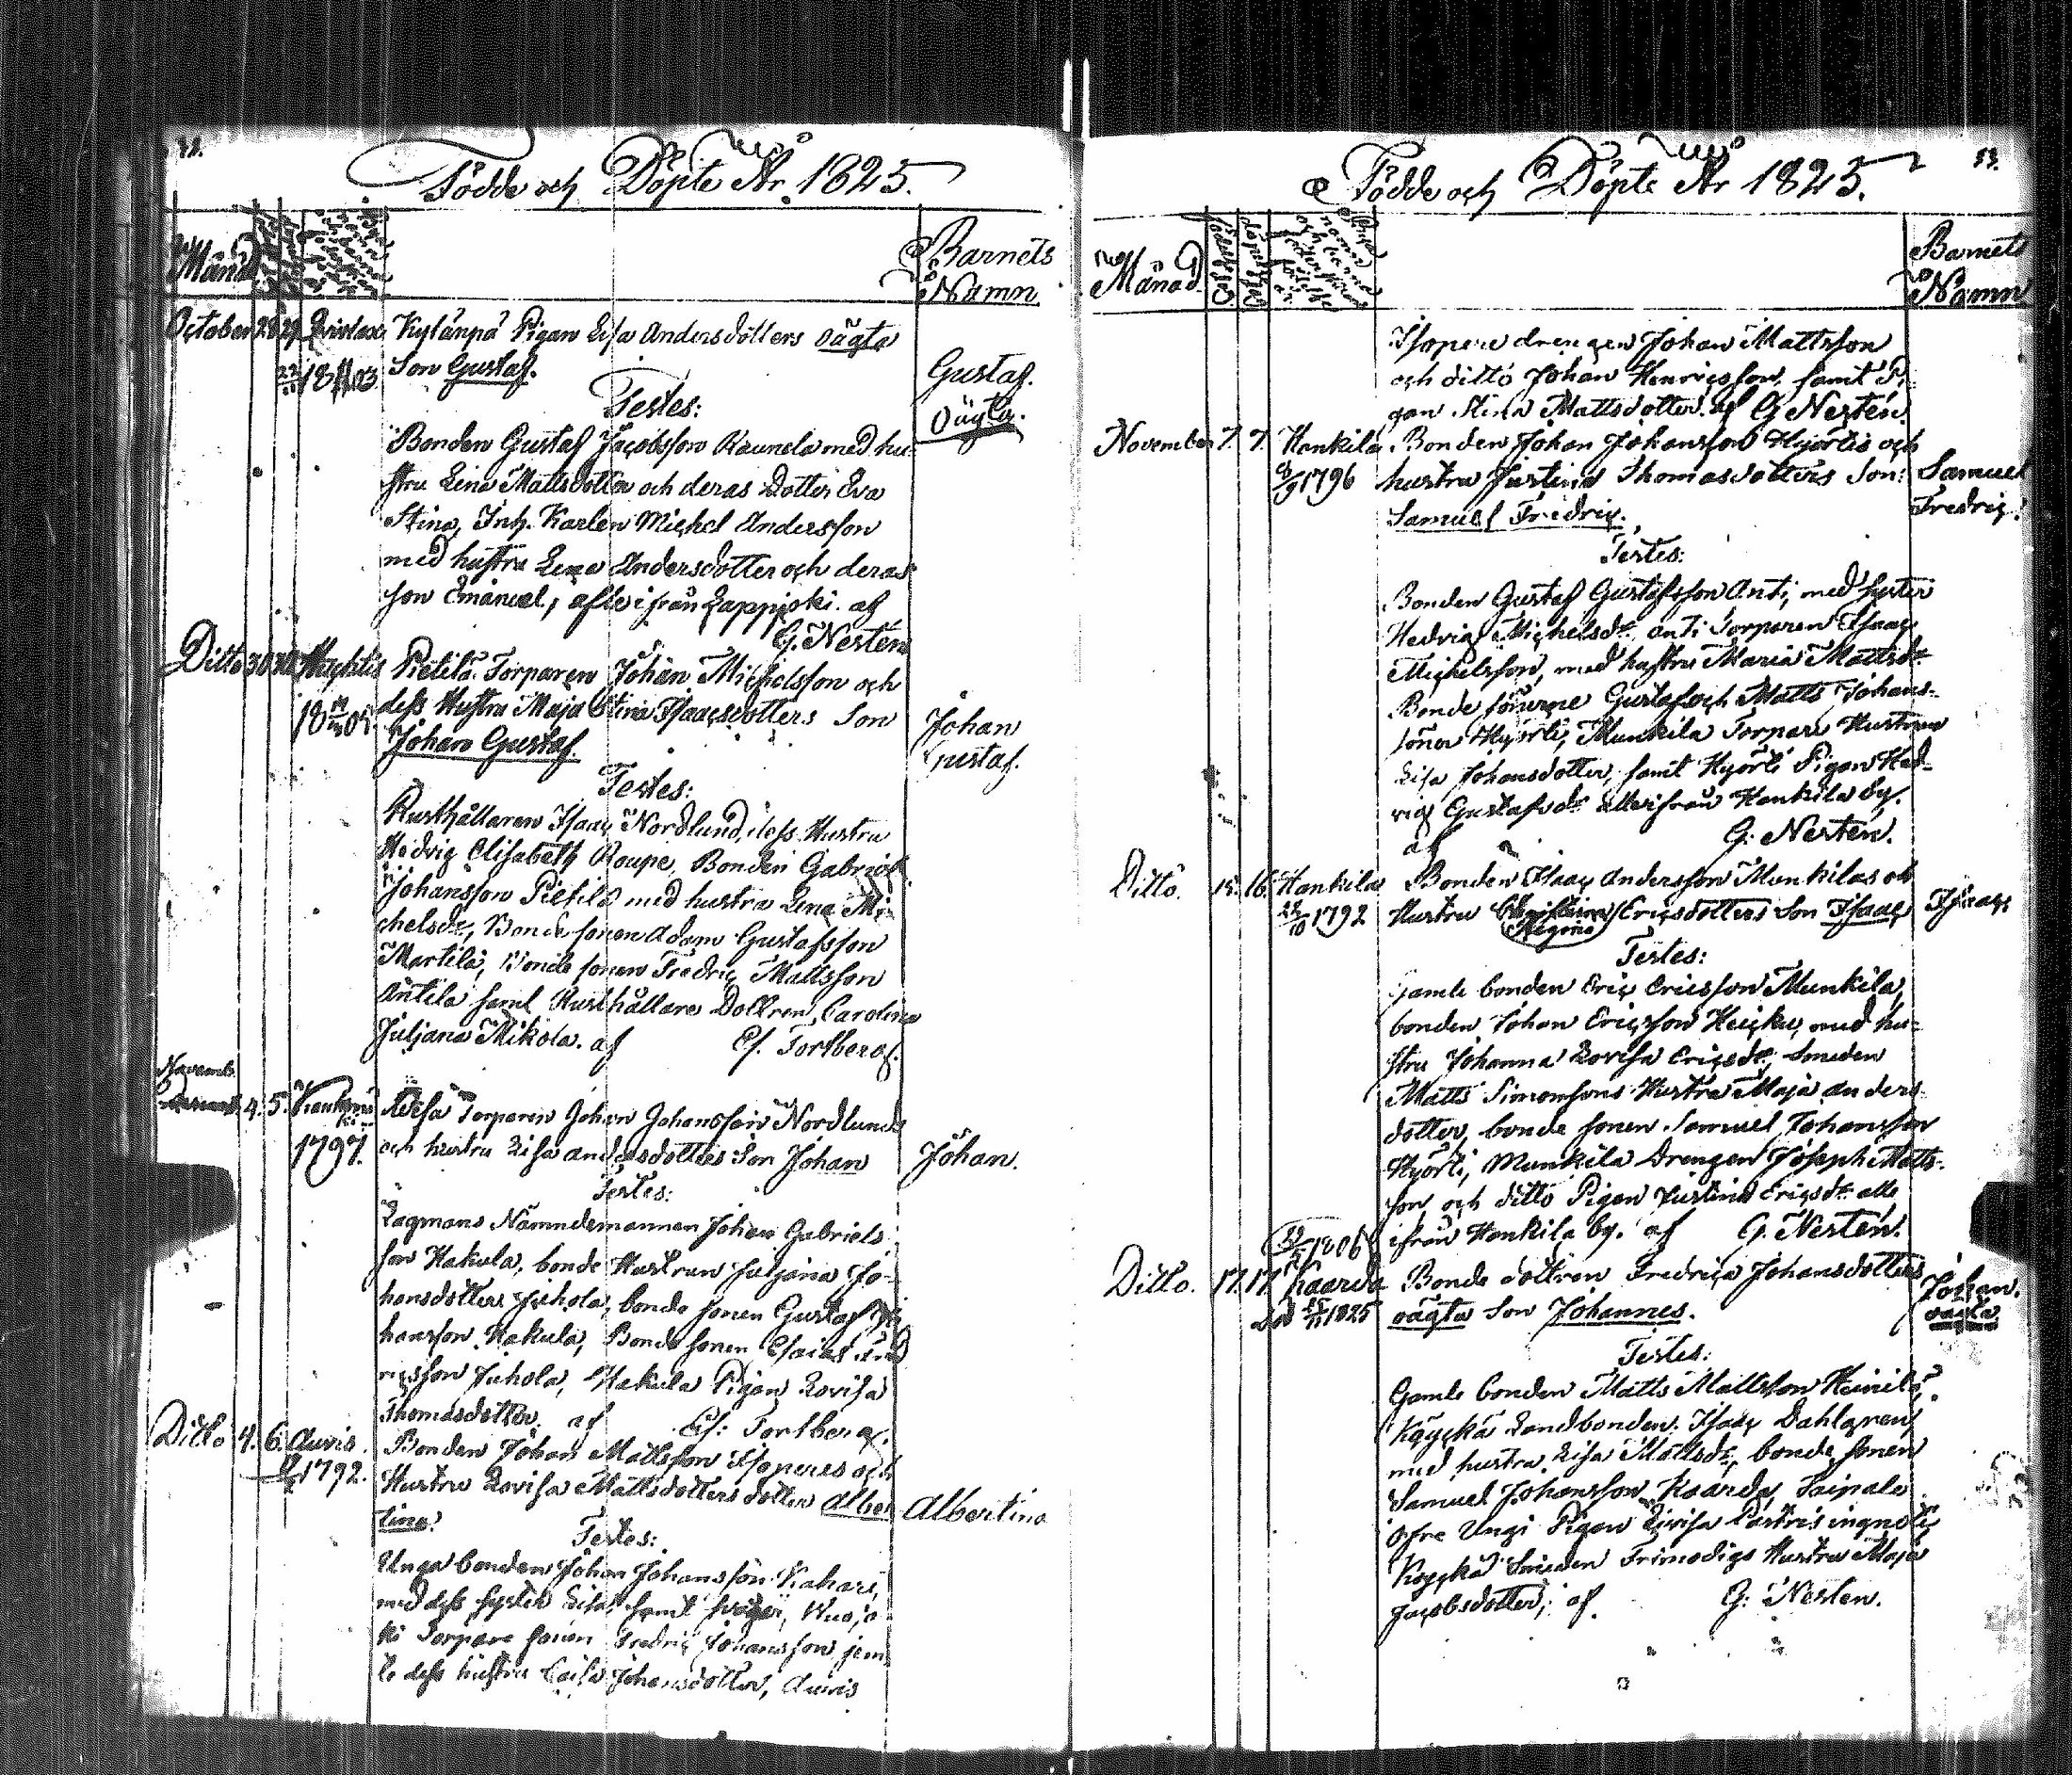 Födde och Döpte År 1825.
Månad
Barnets
Namn.
October 28 29 Kylänpä Pigan Lisa Andersdotters oägta
Son Gustaf.
Gustaf.
Oägta.
Testes:
Bonden Gustaf Jacobsson Raunela med hu-
stru Lena Mattsdotter och deras Dotter Eva
Stina, Inh. Karlen Michel Andersson
med hustru Lena Andersdotter och deras
son Emanuel, alle ifrån Lappijoki. af
G. Nerten
Ditto 30 30 Pietilä Torparen Johan Michelsson och
dess Hustru Maja Stina Isaacsdotters Son
Johan Gustaf.
Johan
Gustaf.
Testes:
Rusthållaren Isaac Nordlund, dess Hustru
Hedvig Elisabeth Roupe, Bonden Gabriel
Johansson Pietilä med hustru Lena Mi-
chelsdr, Bonde sonen Adam Gustafsson
Martila, Bonde sonen Fredric Mattsson
Antila samt Rusthållare Dottren Carolina
Juljana Mikola. af Forlberg.
Novemb.
4. 5. Torparen Johan Johansson Nordlunds
1797. och hustru Lisa Andersdotters Son Johan
Johan.
Testes:
Lagmans Nämndemannen Johan Gabriels
son Hakula, bonde Hustrun Juljana Jo-
hansdotter Juhola, bonde sonen Gustaf Jo-
hansson Hakula, Bonde sonen Esaias
Juhola, Hakula Pigan Lovisa
Thomasdotter. af Forlberg.
Ditto 4. 6. Auvis. Bonden Johan Mattsson Isoperes och
1792. Hustru Lovisa Mattsdotters dotter Alber
tina.
Albertina
Testes:
Unga bonden Johan Johansson Kahari,
med dess syster Lisa, samt svåger, Vuojo-
ki Torpare sonen Fredric Johansson jem
te dess hustru Caisa Johansdotter, Auvis
Födde och Döpte År 1825.
53.
Månad
Barnets
Namn
Isopere drengen Johan Mattsson
och ditto Johan Henricsson, samt Pi-
gan Stina Mattsdotter. af G. Nerten.
November 7. 7. Hankila Bonden Johan Johansson Hyörtis och
1796 hustru Justina Thomasdotters Son:
Samuel Fredric.
Samuel
Fredric.
Testes:
Bonden Gustaf Gustafsson Anti, med syster
Hedvig Michelsdr Anti Torparen Isaac
Michelsson, med hustru Maria Mattsdr
Bonde sönerne Gustaf och Matts Johans-
söner Hyörti, Munkila Torpare Hustrun
Lisa Johansdotter, samt Hyörti Pigan Hed-
vig Gustafsdr alle ifrån Hankila by.
af G. Nerten.
Ditto. 15. 16. Hankila Bonden Isaac Andersson Munkilas och
1792 Hustru Regina Ericsdotters Son Isaac
Isaac
Testes:
Gamle bonden Eric Ericsson Munkila,
bonden Johan Ericsson Heicku, med hu-
stru Johanna Lovisa Ericsdr, Smeden
Matts Simonssons Hustru Maja Anders-
dotter, bonde sonen Samuel Johansson
Hyörti, Munkila Drengen Joseph Matts-
son och ditto Pigan Justina Ericsdr alle
ifrån Hankila by. af G. Nerten.
1806
Ditto. 17. 17 Kaarda Bonde dottren Fredrica Johansdotters
1825 oägta Son Johannes.
Johan.
oägta
Testes:
Gamle bonden Matts Mattsson Heinilä,
Köyckä Landbonden Isaac Dahlgren
med hustru Lisa Mattsdr, bonde sonen
Samuel Johansson Kaarda, Saipala
öfre Ungi Pigan Lovisa Patris ingnoti
Köyckä Smeden Frimodigs Hustru Maja
Jacobsdotter, af. G. Nerten.